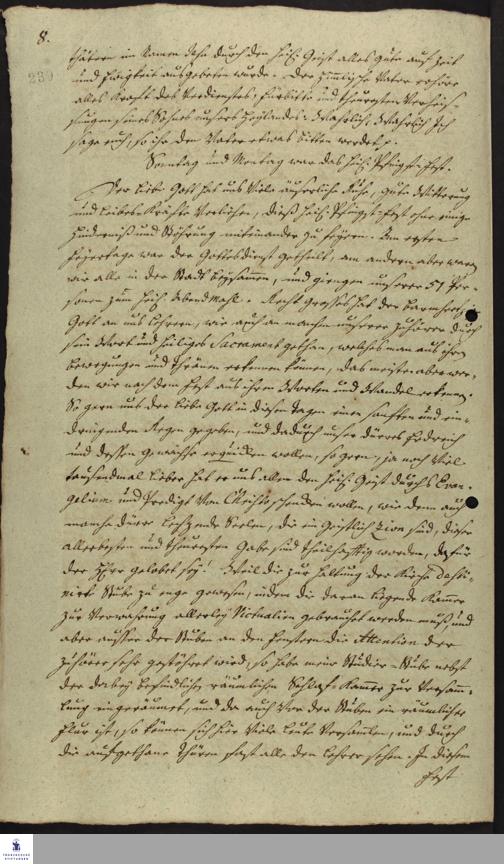 8.
239
thätern im Namen Jesu durch den Heil. Geist alles gute auf Zeit
und Ewigkeit ausgebeten wurde. Der himlische Vater erhöre
alles kraft des Verdienstes, Fürbitte und theuresten Verheis-
sungen seines Sohnes unsers Heylandes: Wahrlich, Wahrlich Ich
sage euch, so ihr den Vater etwas bitten werdet p.
Sonntag und Montag war das Heil. Pfingst-Fest.
Der liebe Gott hat uns viele äusserliche Ruhe, gute Witterung
und Leibes-Kräfte verliehen, diess Heil. Pfingst-Fest ohne einige
Hinderniss und Stöhrung miteinander zu feyern. Am ersten
Feyertage war der Gottesdienst getheilt, am andern aber waren
wir alle in der Stadt beysammen, und giengen unserer 51 Per-
sonen zum Heil. Abendmahl. Recht grosses hat der barmhertzige
Gott an uns Lehrern, wie auch an manchen unserer Zuhörer durch
sein Wort und heiliges Sacrament gethan, welches man aus ihren
Bewegungen und Thränen erkennen können, das meiste aber wer-
den wir nach dem Fest aus ihren Worten und Wandel erkennen.
So gern uns der liebe Gott in diesen Tagen einen sanften und ein-
dringenden Regen gegeben, und dadurch unser dürres Erdreich
und dessen Gewächse erquicken wollen, so gern, ja noch viel
tausendmal lieber hat er uns allen den Heil. Geist durchs Evan-
gelium und Predigt von Christo schencken wollen, wie denn auch
manche dürre lechzende Seelen, die im Geistlich Zion sind, dieser
allerbesten und theuresten Gabe sind theilhafftig worden, dafür
der HErr gelobet sey! Weil die zur Haltung der Kirche
Stube zu enge gewesen, indem die daran liegende Kammer
zur Verwahrung allerley Victualien gebraucht werden muss, und
aber ausser der Stuben an den Fenstern die Attention der
Zuhörer sehr gestöhret wird, so habe meine Studier-Stube nebst
der dabey befindlichen räumlichen Schlaf-Kammer zur Versamm-
lung eingeräumet, und da auch vor der Stuben ein räumlicher
Flur ist, so können sich hier viele Leute versamlen, und durch
die aufgethane Thüren fast alle den Lehrer sehen. In diesem
Fest
FRANCKESCHE
STIFTUNGEN